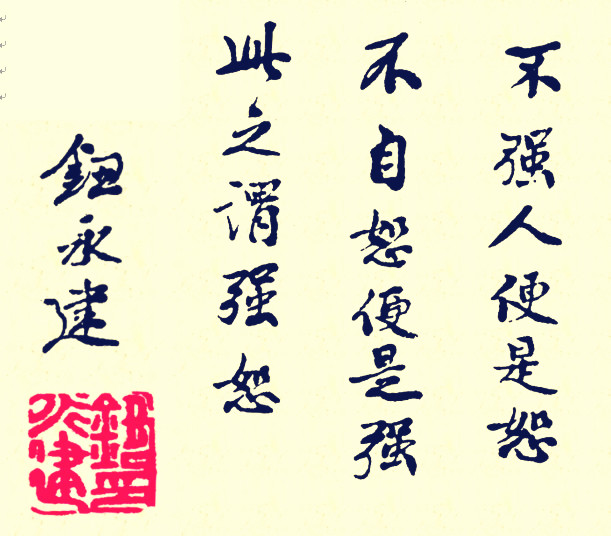 不强人便是恕
不自恕便是强
此之谓强恕
鈕永建
鈕永建印